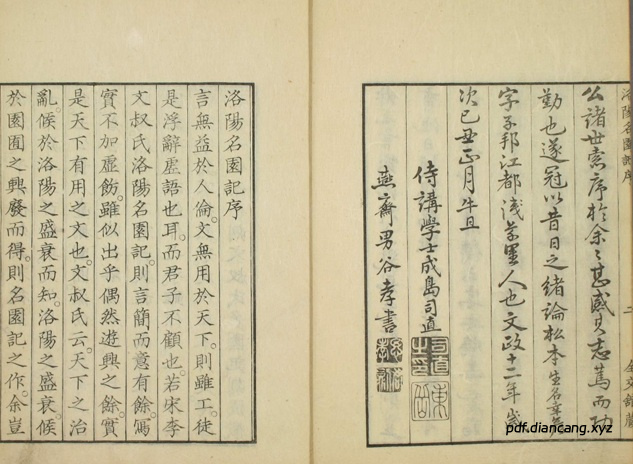 洛陽名園記序
二
公諸世索序於余〻甚感其志篤而功
勤也遂冠以昔日之緒論松本生名幸
字子邦江都淺草里人也文政十二年歲
次己丑正月 旦
侍講學士成島司直
燕齋男谷孝書
司直之印
洛陽名園記序
言無益於人倫。文無用於天下。則雖工。徒
是浮辭虛語也耳。而君子不顧也。若宋李
文叔氏洛陽名園記。則言簡而意有餘。寫
實不加虛飭。雖似出乎偶然遊興之餘。實
是天下有用之文也。文叔氏云。天下之治
亂。候於洛陽之盛衰而知。洛陽之盛衰。候
於園囿之興廢而得。則名園記之作。余豈
pdf.diancang.xyz